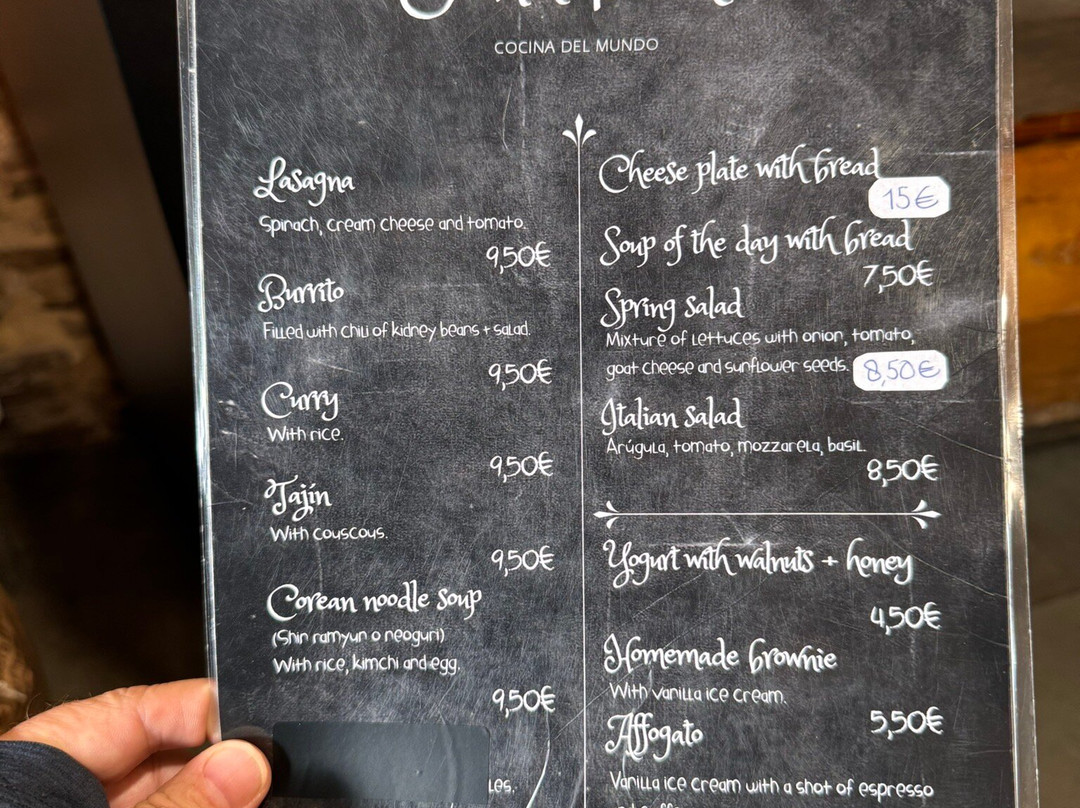 COCINA DEL MUNDO
Lasagna
Spinach, cream cheese and tomato.
9,50€
Burrito
Filled with chili of kidney beans + salad.
9,50€
Curry
With rice.
9,50€
Tajín
With couscous.
9,50€
Corean noodle soup
(Shin ramyun o neoguri)
With rice, kimchi and egg.
9,50€
les.
Cheese plate with bread
15€
Soup of the day with bread
7,50€
Spring salad
Mixture of lettuces with onion, tomato,
goat cheese and sunflower seeds. 8,50€
Italian salad
Arúgula, tomato, mozzarela, basil.
8,50€
Yogurt with walnuts + honey
4,50€
Homemade brownie
With vanilla ice cream.
5,50€
Affogato
Vanilla ice cream with a shot of espresso